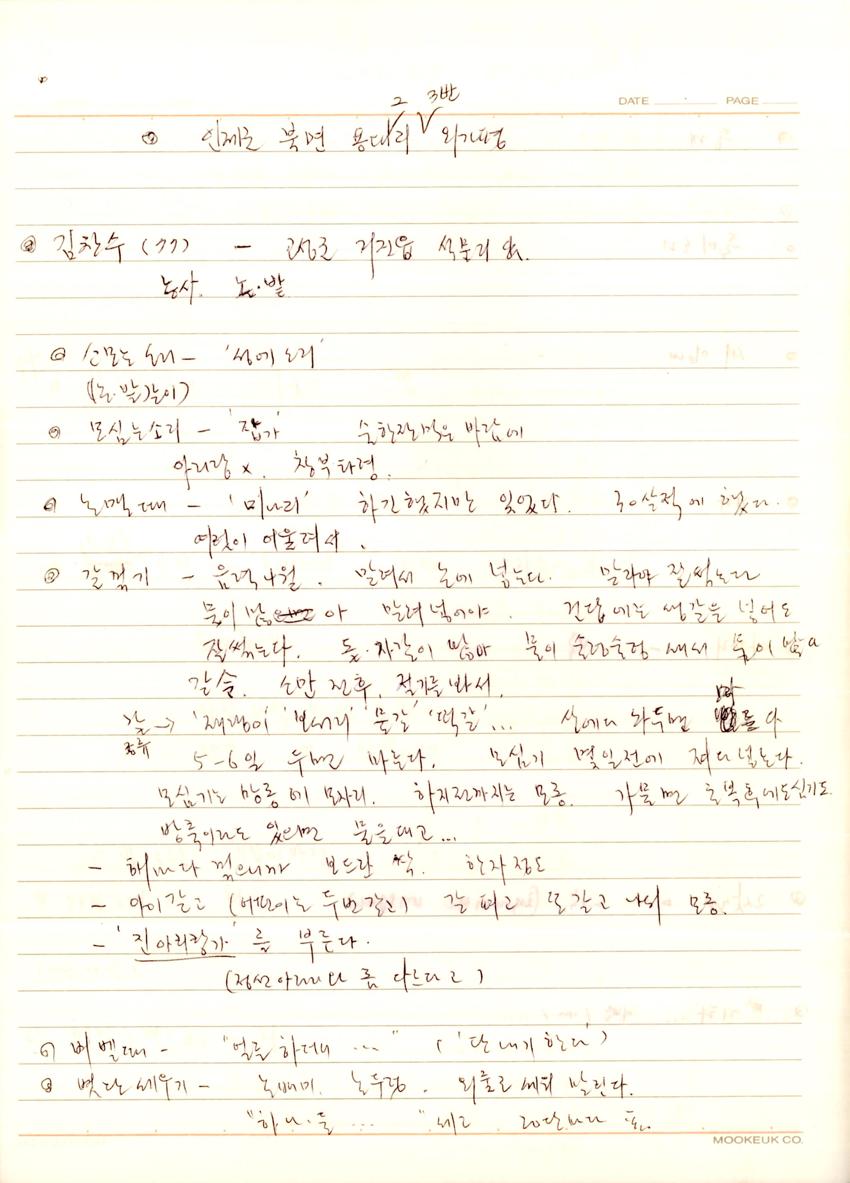 DATE PAGE
2 3반
◎ 인제군 북면 용대리 외가평
◎ 김찬수 (77) - 고성군 거진읍 석문리
농사. 논·밭
◎ 소모는 소리 - '성에 소리'
((논·밭)갈이)
◎ 모심는소리 - '잡가' 술한잔먹은 바람에
아리랑 x. 창부타령.
◎ 논맬때 - '미나리' 하긴했지만 잊었다. 30살적에 했다.
여럿이 어울려서.
◎ 갈꺾기 - 음력4월. 말려서 논에 넣는다. 말라야 잘썩는다
물이 많아 말려넣어야. 건답에는 생갈을 넣어도
잘썩는다. 돌·자갈이 많아 물이 술렁술렁 새서
갈을. 소만 전후, 절기를 봐서.
갈종류 → '재랭이' '보서리' '물갈' '떡갈'... 산에다 놔두면 마른다
5-6일 두면 마른다. 모심기 몇일전에 져다넣는다.
모심기는 망종에 모자리. 하지전까지는 모종. 가물면 초복후에도심기도
방죽이라도 있으면 물을대고...
- 해마다 꺾으니까 보드란 싹. 한자정도
- 아이갈고 (어떤이는 두번갈고) 갈 펴고 또갈고 나서 모종.
- '진아리랑가'를 부른다.
(정선아라리와 좀 다르다고)
◎ 벼벨때 - "얼른 하더니 ..." ('단내기한다')
◎ 볏단세우기 - 논배미. 논두렁. 외줄로 세워 말린다.
"하나·둘 ..." 세고 20단마다
MOOKEUK CO.